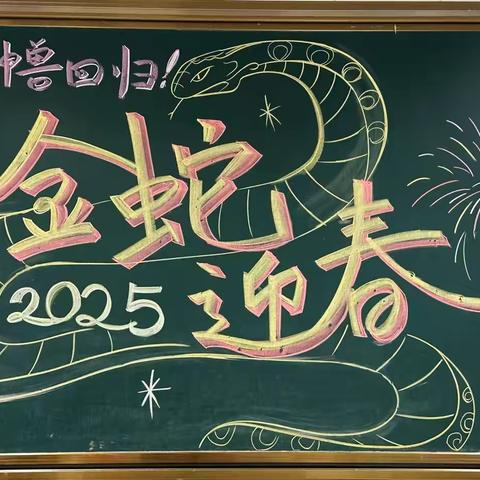 神兽回归!
金蛇
迎春
2025